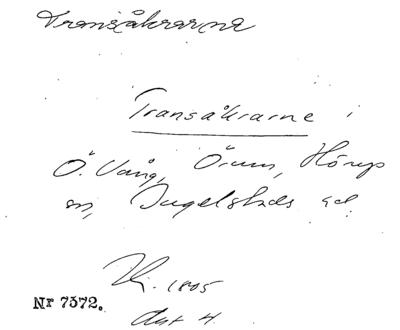 Transåkrarna
Transåkrarne i
Ö. Vång, Örum, Hörups
sn, Ingelstads hd
1805
Akt 4
Nr 7372.